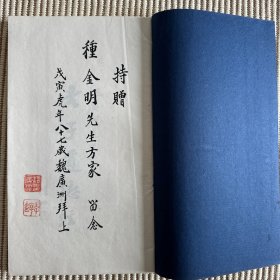 持贈
種金明先生方家 留念
戊寅虎年八十七歲魏廣洲拜上